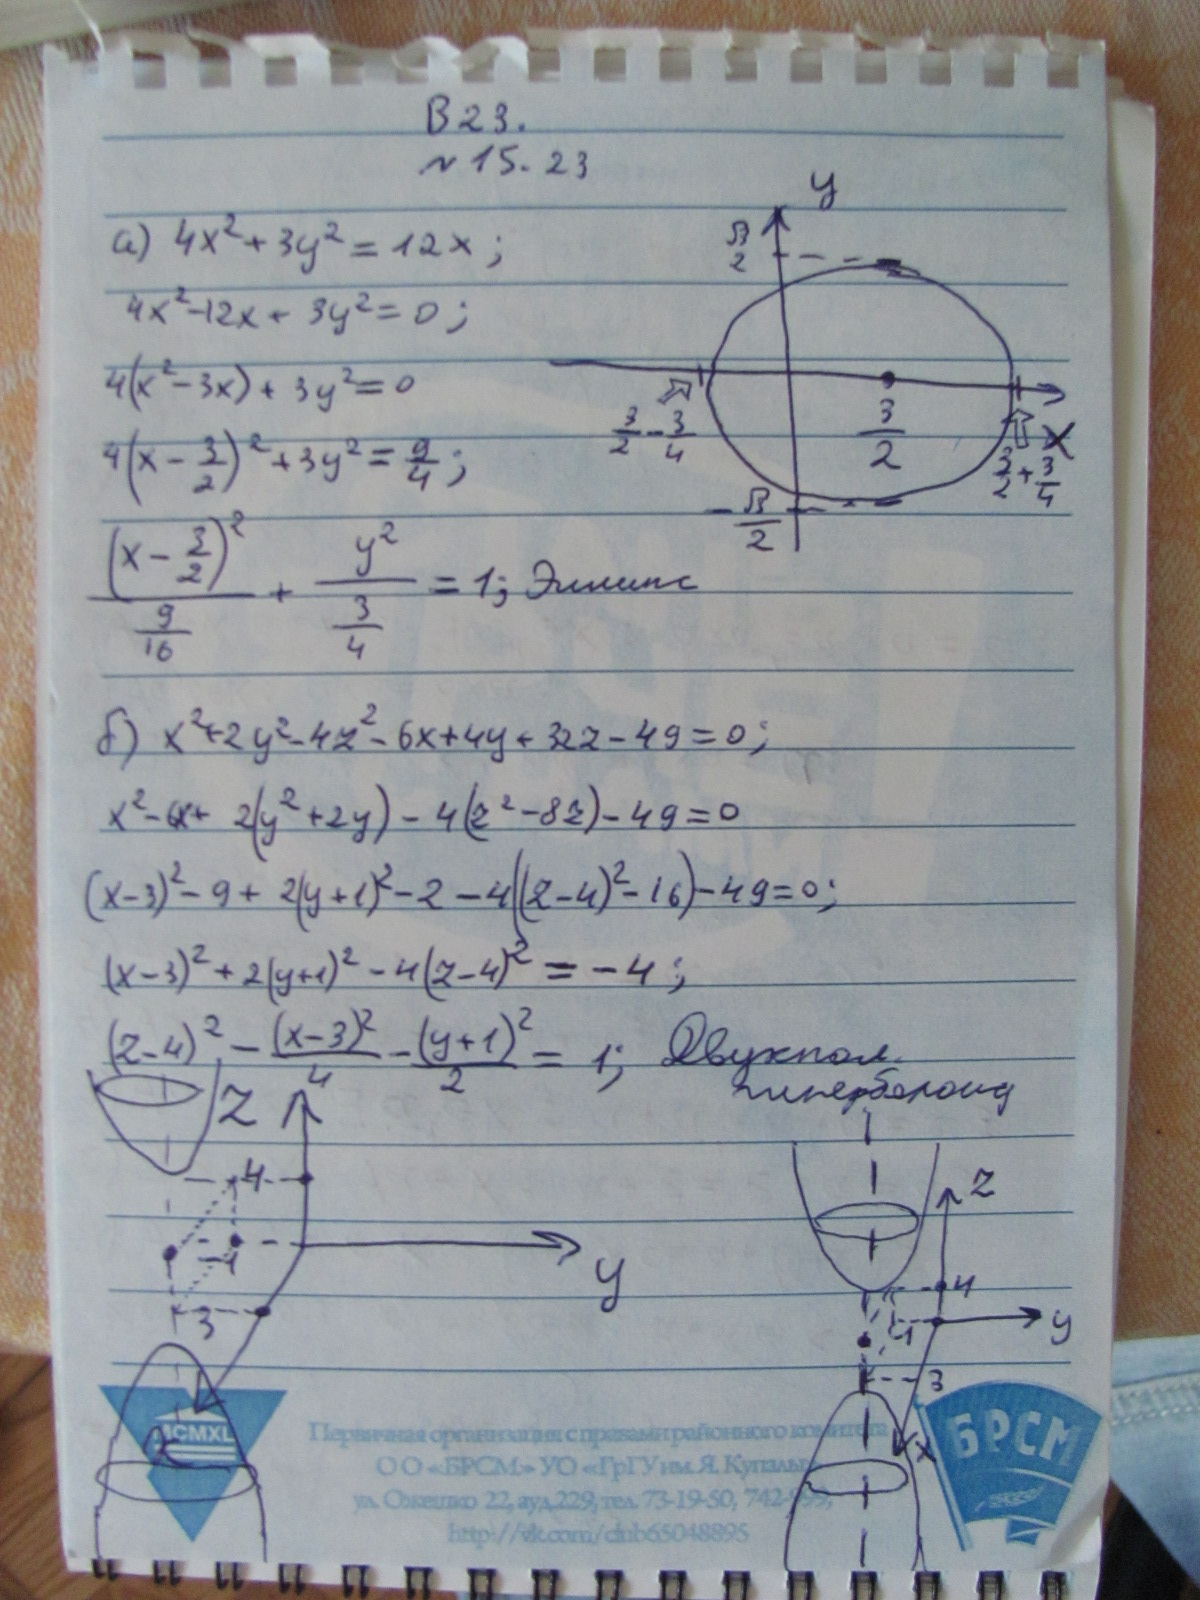 В 23.
№ 15.23
а) 4x² + 3y² = 12x;
4x² - 12x + 3y² = 0;
4(x² - 3x) + 3y² = 0
4(x - 3/2)² + 3y² = 9/4;
(x - 3/2)² / (9/16) + y² / (3/4) = 1; Эллипс
y
√3/2
3/2 - 3/4
3/2
3/2 + 3/4
x
-√3/2
б) x² + 2y² - 4z² - 6x + 4y + 32z - 49 = 0;
x² - 6x + 2(y² + 2y) - 4(z² - 8z) - 49 = 0
(x-3)² - 9 + 2(y+1)² - 2 - 4((z-4)² - 16) - 49 = 0;
(x-3)² + 2(y+1)² - 4(z-4)² = -4;
(z-4)² - (x-3)²/4 - (y+1)²/2 = 1; Двухпол.
гиперболоид
z
4
-1
y
3
x
z
4
-1
y
3
x
MCMXL
Первичная организация с правами районного комитета
О О «БРСМ» УО «ГрГУ им. Я. Купалы»
ул. Ожешко 22, ауд.229, тел. 73-19-50, 742-999,
http://vk.com/club65048895
БРСМ